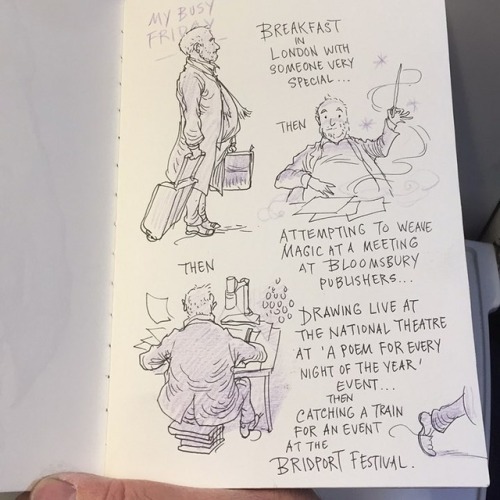 MY BUSY
FRIDAY
BREAKFAST
IN
LONDON WITH
SOMEONE VERY
SPECIAL...
THEN
ATTEMPTING TO WEAVE
MAGIC AT A MEETING
AT BLOOMSBURY
PUBLISHERS...
THEN
DRAWING LIVE AT
THE NATIONAL THEATRE
AT 'A POEM FOR EVERY
NIGHT OF THE YEAR'
EVENT...
THEN
CATCHING A TRAIN
FOR AN EVENT
AT THE
BRIDPORT FESTIVAL.